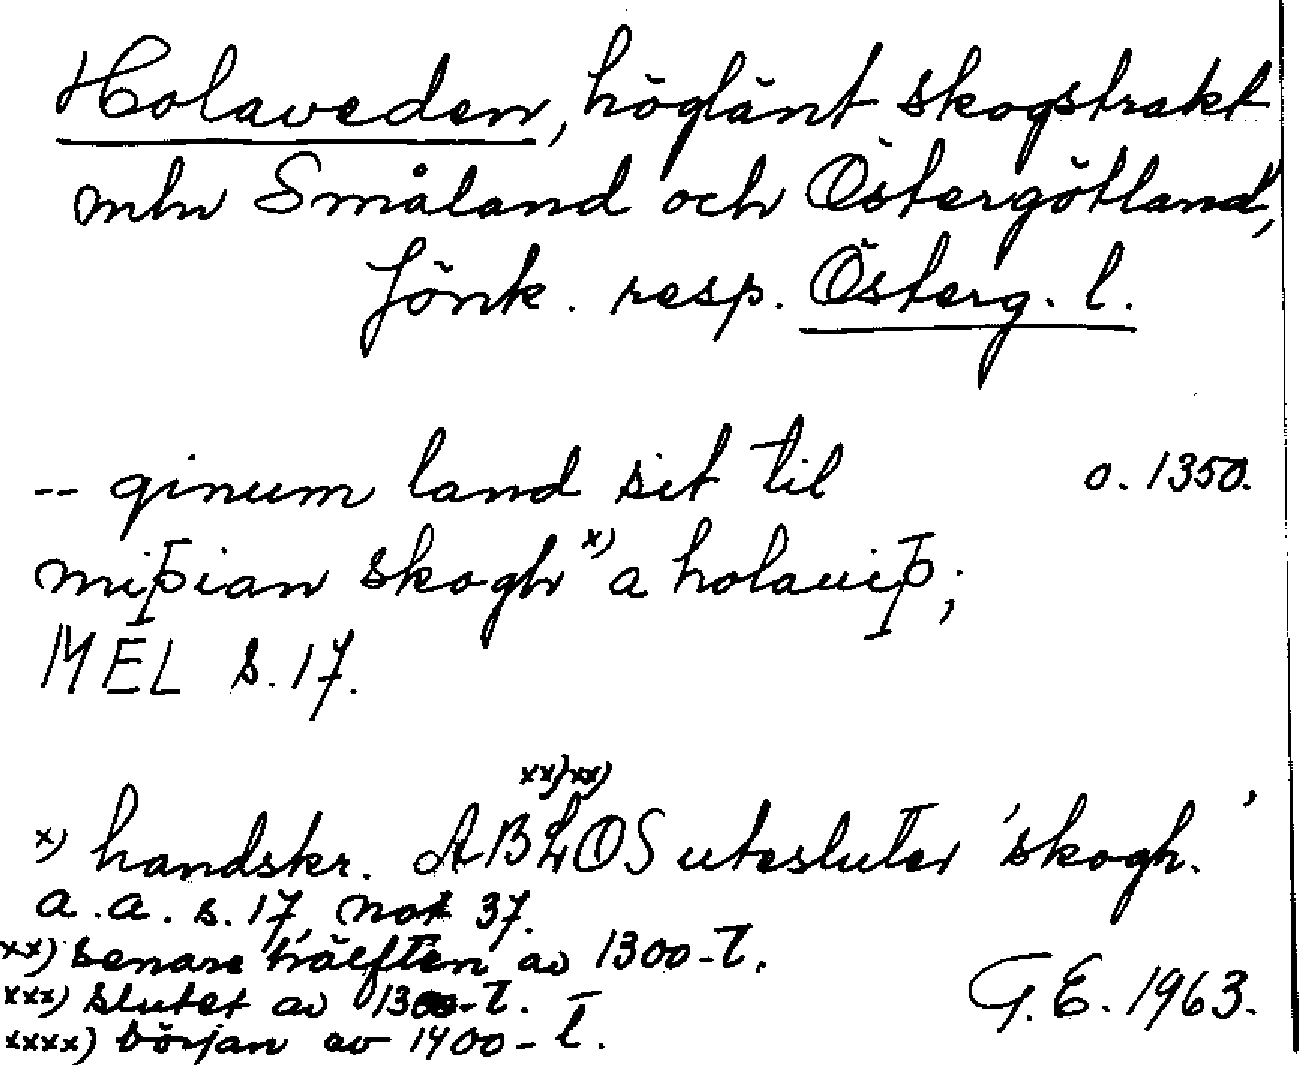 Holaveden, höglänt skogstrakt
mln Småland och Östergötland,
Jönk. resp. Österg. l.
-- ginum land sit til o. 1350.
miþian skogh x) a holauiþ;
MEL s. 17.
xx) xx)
x) handskr. ABLOS utesluter 'skogh.'
a. a. s. 17, not 37.
xx) senare hälften av 1300-t.
xxx) slutet av 1300-t.
xxxx) början av 1400-t.
G.E. 1963.